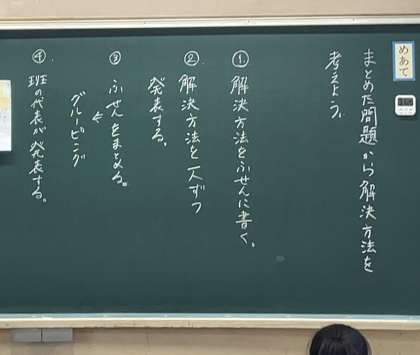 めあて
まとめた問題から解決方法を
考えよう。
① 解決方法をふせんに書く。
② 解決方法を一人ずつ
発表する。
③ ふせんをまとめる。
←
グルーピング
④ 班の代表が発表する。